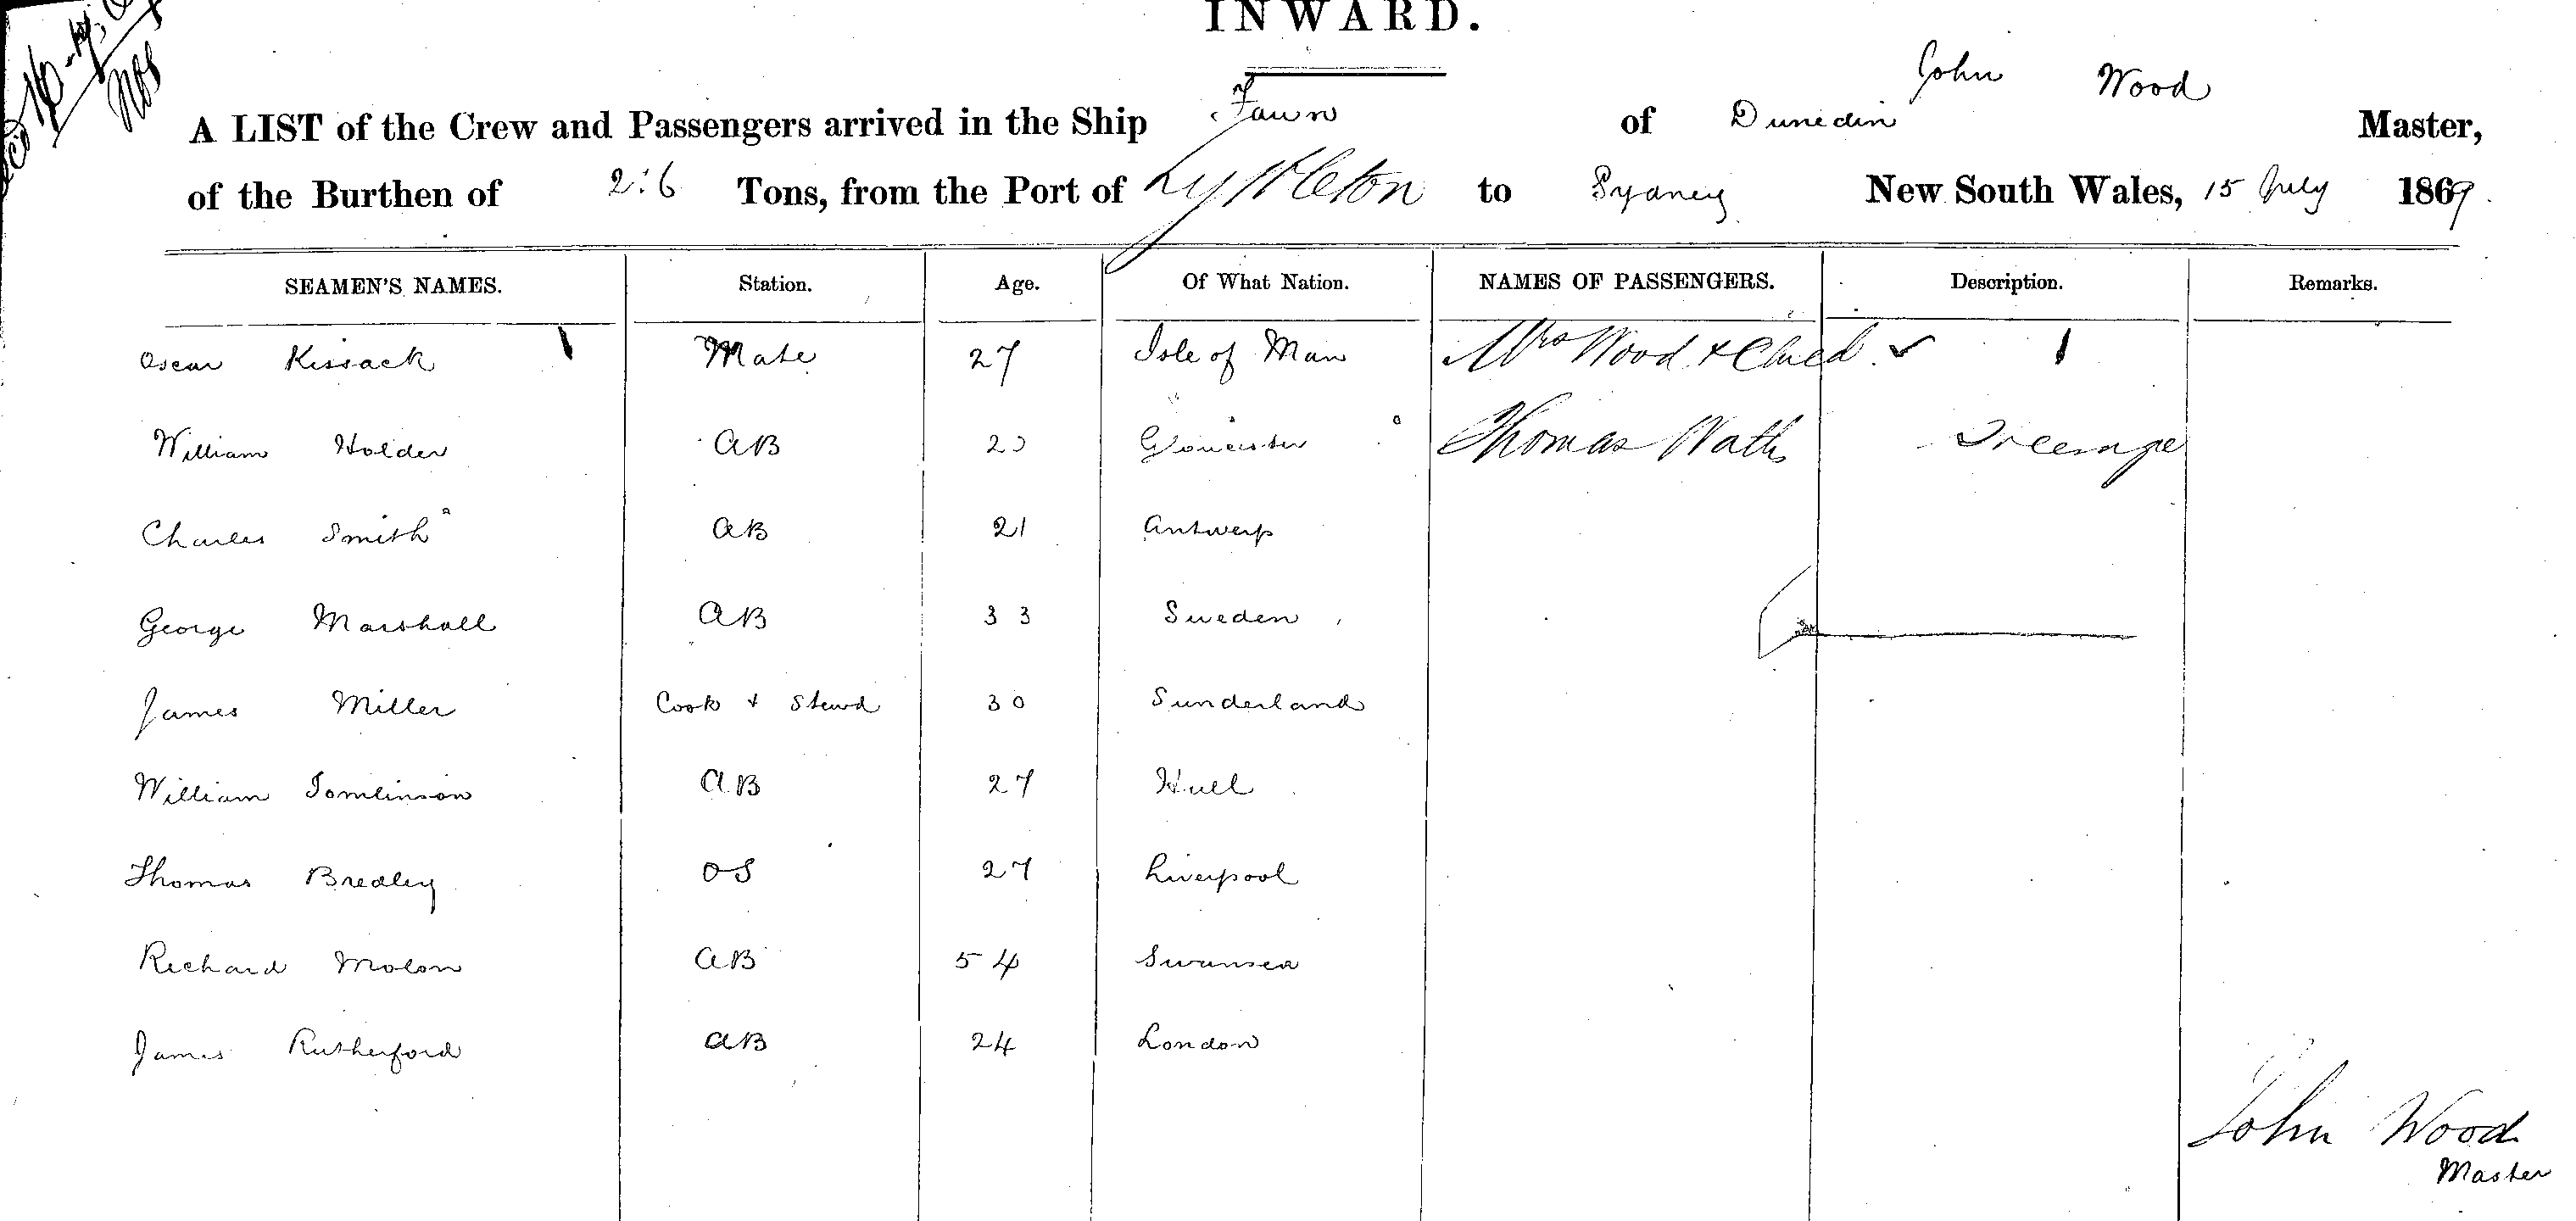 INWARD.
A LIST of the Crew and Passengers arrived in the Ship Fawn of Dunedin John Wood Master,
of the Burthen of 2:6 Tons, from the Port of Lyttleton to Sydney New South Wales, 15 July 1869.
SEAMEN'S NAMES. Station. Age. Of What Nation. NAMES OF PASSENGERS. Description. Remarks.
Oscar Kissack Mate 27 Isle of Man Mrs Wood & Child
William Holder AB Gloucester Thomas Watts
Charles Smith AB 21 Antwerp
George Marshall AB 33 Sweden
James Miller Cook + Stewd 30 Sunderland
William Tomlinson AB 27 Hull
Thomas Bredley OS 27 Liverpool
Richard Molon AB 54 Swansea
James Rutherford AB 24 London
John Wood
Master